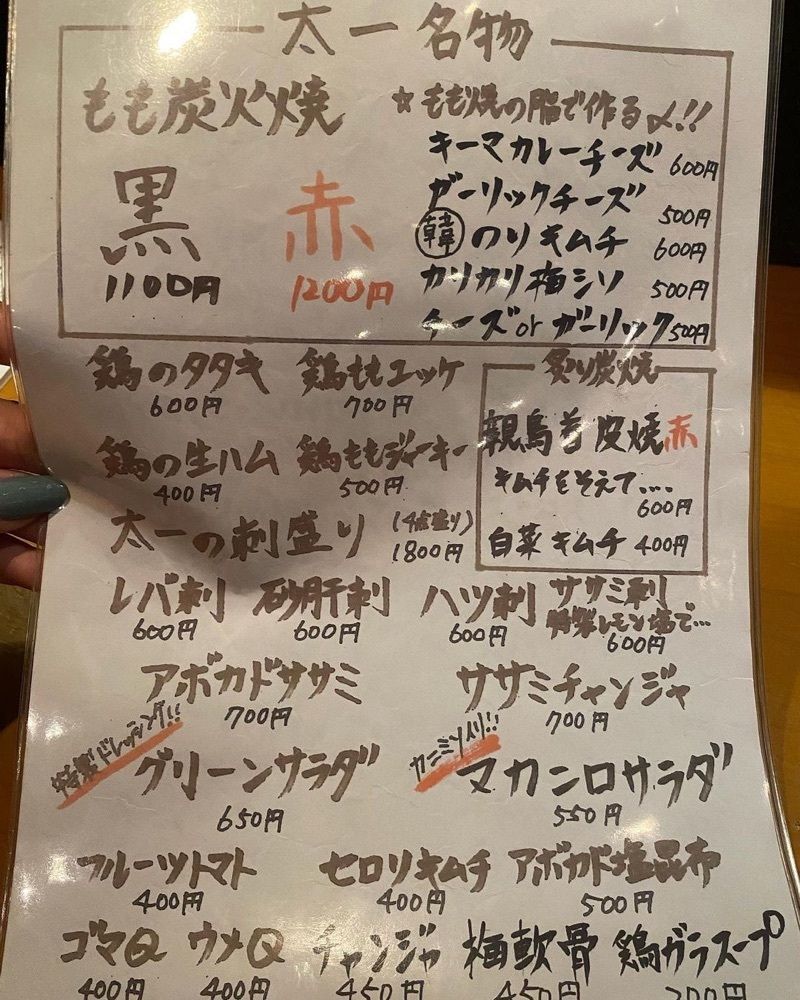 太一名物
もも炭火焼
黒 赤
1100円 1200円
☆もも焼の脂で作る〆!!
キーマカレーチーズ 600円
ガーリックチーズ 500円
韓のりキムチ 600円
カリカリ梅シソ 500円
チーズorガーリック 500円
鶏のタタキ 鶏ももユッケ
600円 700円
鶏の生ハム 鶏ももジャーキー
400円 500円
太一の刺盛り (4点盛り)
1800円
炙り炭焼
親鳥首皮焼赤
キムチをそえて...
600円
白菜キムチ 400円
レバ刺 砂肝刺 ハツ刺 ササミ刺
特製レモン塩で...
600円 600円 600円 600円
アボカドササミ ササミチャンジャ
700円 700円
特製ドレッシング!! カニミソ入り!!
グリーンサラダ マカニロサラダ
650円 550円
フルーツトマト セロリキムチ アボカド塩昆布
400円 400円 500円
ゴマQ ウメQ チャンジャ 梅軟骨 鶏ガラスープ
400円 400円 450円 450円 200円